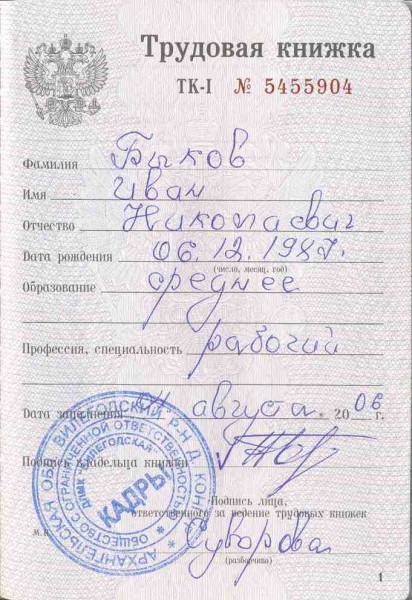 Трудовая книжка
ТК-I № 5455904
Фамилия Быков
Имя Иван
Отчество Николаевич
Дата рождения 06.12.1987г.
(число, месяц, год)
Образование среднее
Профессия, специальность рабочий
Дата заполнения августа 2006 г.
Подпись владельца книжки
Подпись лица,
ответственного за ведение трудовых книжек
м.п. Суворова
(разборчиво)
АРХАНГЕЛЬСКАЯ ОБЛ. ВИЛЕГОДСКИЙ Р-Н Д.
ОБЩЕСТВО С ОГРАНИЧЕННОЙ ОТВЕТСТВЕННОСТЬЮ
КАДРЫ
1